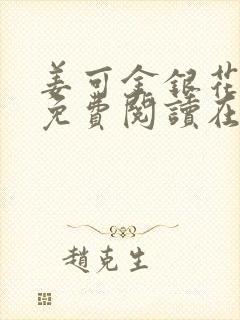 姜可金銀花
免費閱讀在
趙克生